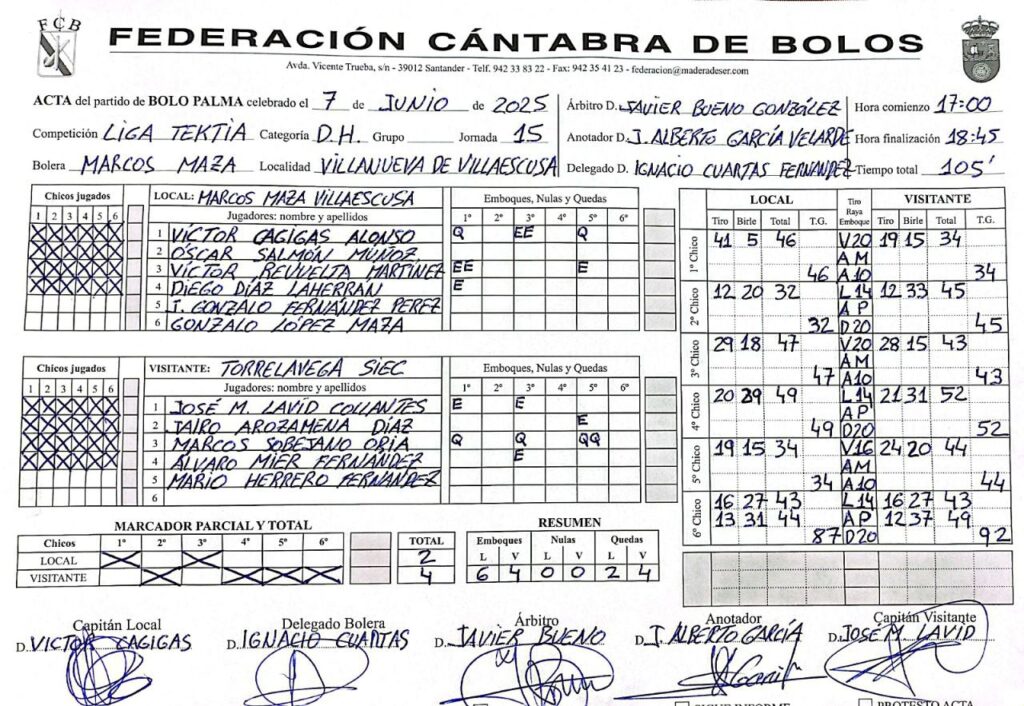 FCB
FEDERACIÓN CÁNTABRA DE BOLOS
Avda. Vicente Trueba, s/n - 39012 Santander - Telf. 942 33 83 22 - Fax: 942 35 41 23 - federacion@maderadeser.com
ACTA del partido de BOLO PALMA celebrado el 7 de JUNIO de 2025 Árbitro D. JAVIER BUENO GONZÁLEZ Hora comienzo 17:00
Competición LIGA TEKTIA Categoría D.H. Grupo Jornada 15 Anotador D. J. ALBERTO GARCÍA VELARDE Hora finalización 18:45
Bolera MARCOS MAZA Localidad VILLANUEVA DE VILLAESCUSA Delegado D. IGNACIO CUARTAS FERNANDEZ Tiempo total 105'
Chicos jugados
1 2 3 4 5 6
LOCAL: MARCOS MAZA VILLAESCUSA Emboques, Nulas y Quedas
Jugadores: nombre y apellidos 1º 2º 3º 4º 5º 6º
1 VÍCTOR CAGIGAS ALONSO Q EE Q
2 ÓSCAR SALMÓN MUÑOZ
3 VÍCTOR REVUELTA MARTÍNEZ EE E
4 DIEGO DÍAZ LAHERRÁN E
5 J. GONZALO FERNÁNDEZ PEREZ
6 GONZALO LÓPEZ MAZA
Chicos jugados
1 2 3 4 5 6
VISITANTE: TORRELAVEGA SIEC Emboques, Nulas y Quedas
Jugadores: nombre y apellidos 1º 2º 3º 4º 5º 6º
1 JOSÉ M. LAVID COLLANTES E E
2 JAIRO AROZAMENA DÍAZ E
3 MARCOS SOBEJANO ORIA Q Q QQ
4 ÁLVARO MIER FERNÁNDEZ E
5 MARIO HERRERO FERNÁNDEZ
6
LOCAL Tiro Raya Emboque VISITANTE
Tiro Birle Total T.G. Tiro Birle Total T.G.
1º Chico 41 5 46 V20 19 15 34
AM
46 A10 34
2º Chico 12 20 32 L14 12 33 45
AP
32 D20 45
3º Chico 29 18 47 V20 28 15 43
AM
47 A10 43
4º Chico 20 29 49 L14 21 31 52
AP
49 D20 52
5º Chico 19 15 34 V16 24 20 44
AM
34 A10 44
6º Chico 16 27 43 L14 16 27 43
13 31 44 AP 12 37 49
87 D20 92
MARCADOR PARCIAL Y TOTAL
Chicos 1º 2º 3º 4º 5º 6º TOTAL
LOCAL X X 2
VISITANTE X X X X 4
RESUMEN
Emboques Nulas Quedas
L V L V L V
6 4 0 0 2 4
Capitán Local Delegado Bolera Árbitro Anotador Capitán Visitante
D. VICTOR CAGIGAS D. IGNACIO CUARTAS D. JAVIER BUENO D. J. ALBERTO GARCÍA D. JOSÉ M. LAVID
SIGUE INFORME PROTESTO ACTA